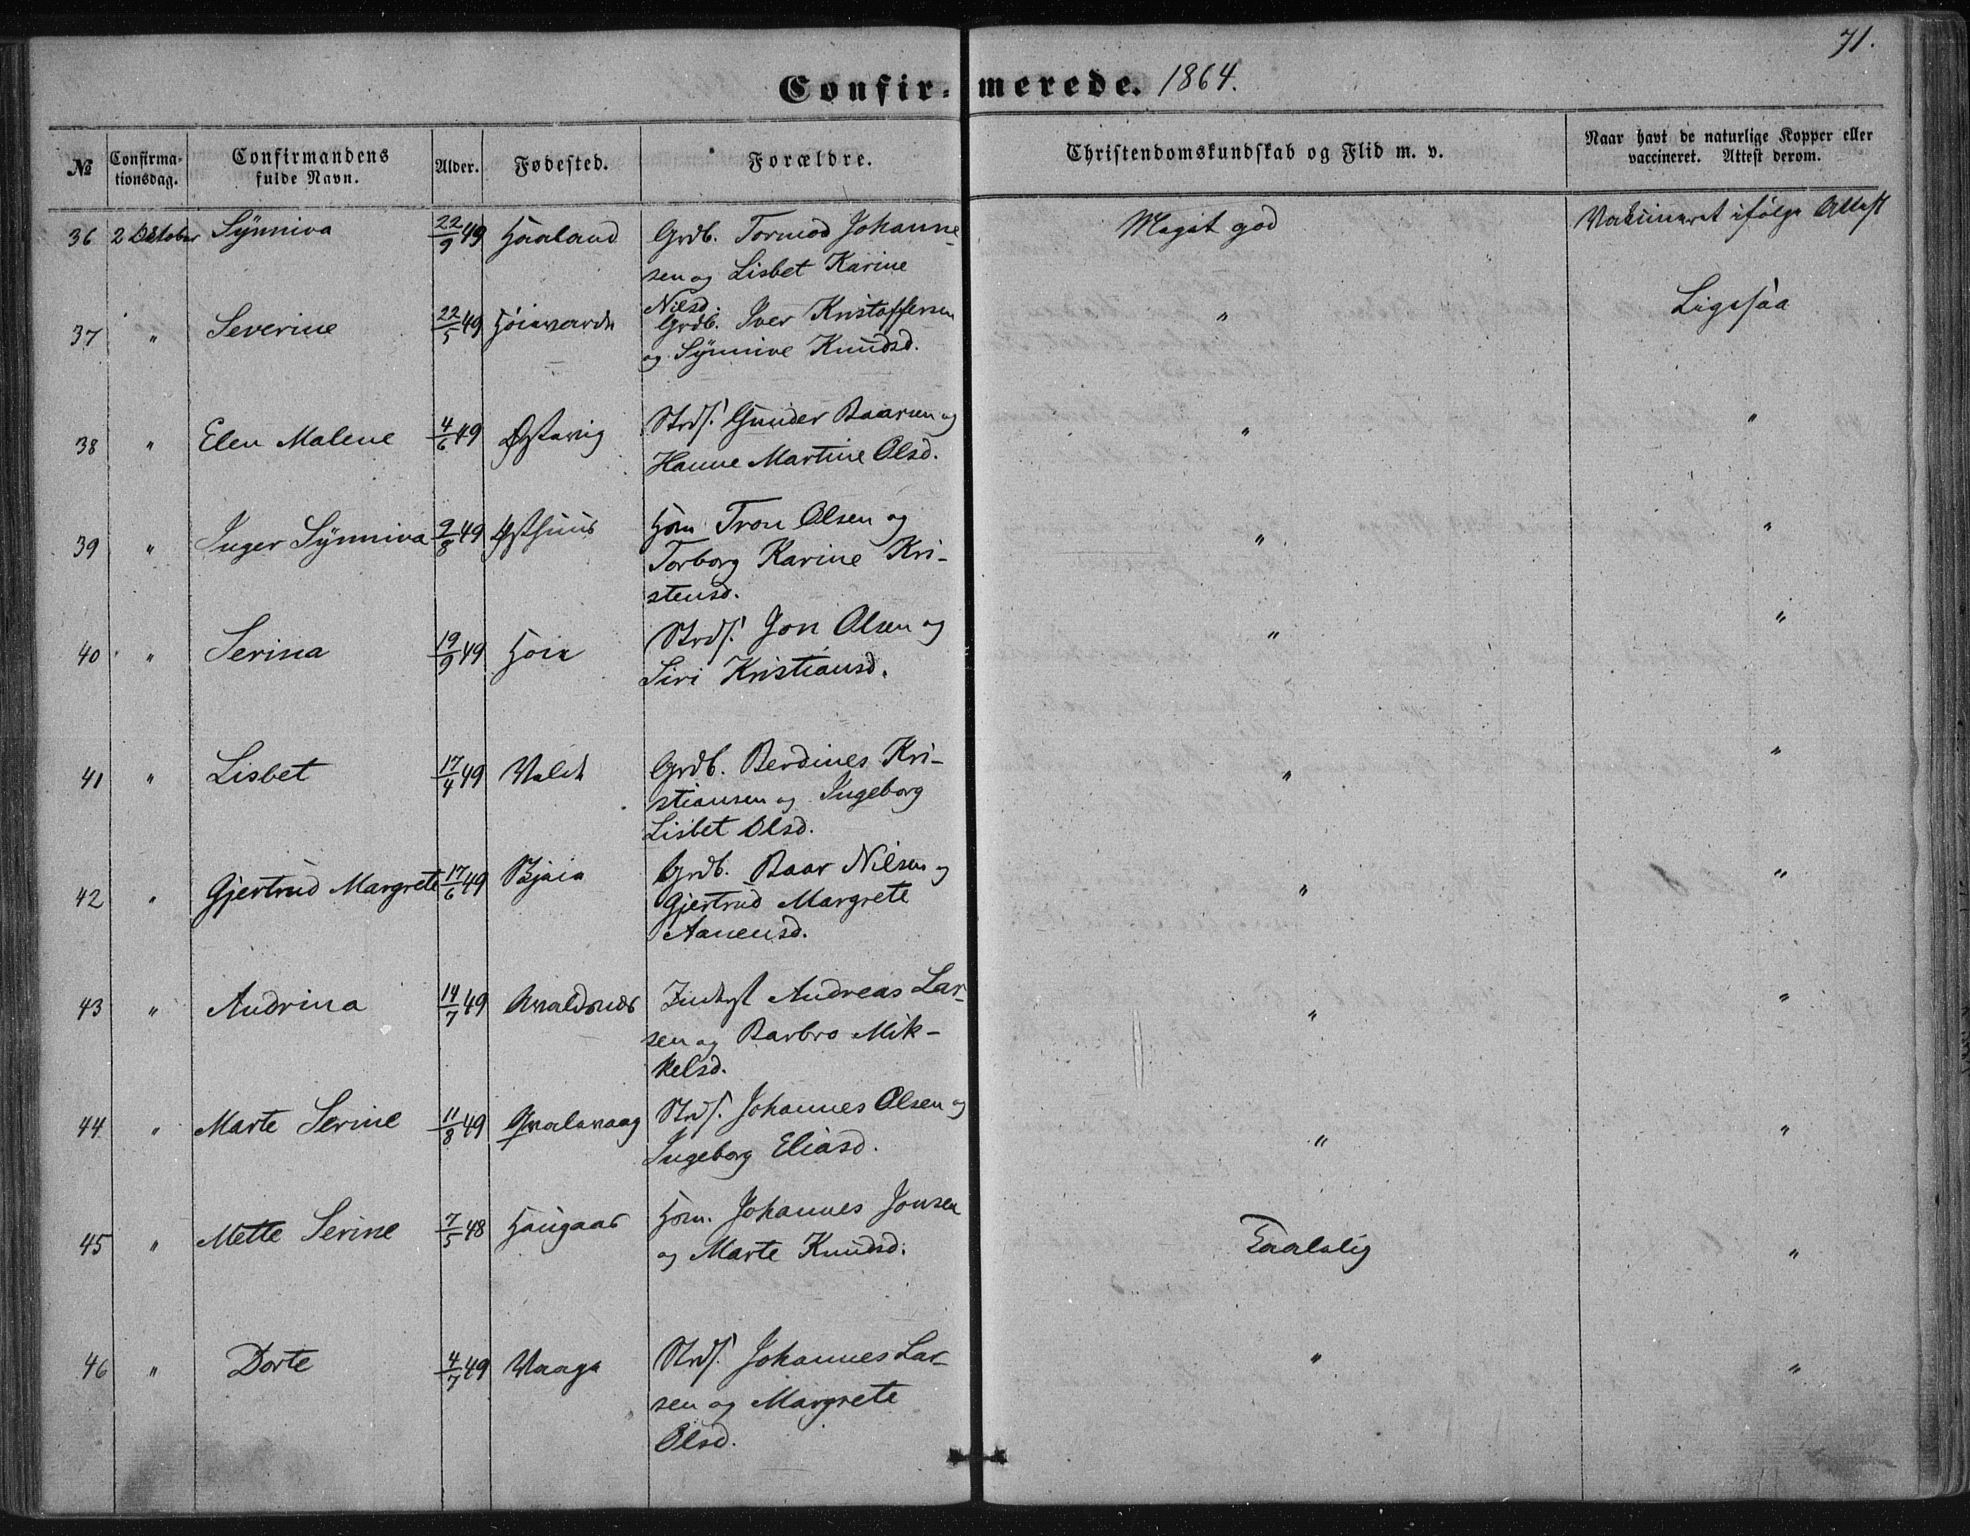 71.
Confir- merede. 1864.
№ Confirma-tionsdag. Confirmandens fulde Navn. Alder. Fødested. Forældre. Christendomskundskab og Flid m. v. Naar havt de naturlige Kopper eller vaccineret. Attest derom.
36 2 Oktober Synniva 22/9 49 Haaland Grdb. Tormod Johanne- Meget god Vakcineret ifølge Attest
sen og Lisbet Karine
Nilsd.
37 " Severine 22/5 49 Høievarde Grdb. Iver Kristoffersen " Ligesaa
og Synnive Knudsd.
38 " Elen Malene 4/6 49 Østavig Strds. Gunder Baarsen og " "
Hanne Martine Olsd.
39 " Inger Synniva 9/8 49 Østhuus Hsm. Tron Olsen og " "
Torborg Karine Kri-
stensd.
40 " Serina 19/9 49 Høie Strds. Jon Olsen og " "
Siri Kristiansd.
41 " Lisbet 17/4 49 Grdb. Berdines Kri- " "
stiansen og Ingeborg
Lisbet Olsd.
42 " Gjertrud Margrete 17/6 49 Grdb. Baar Nilsen og " "
Gjertrud Margrete
Aanensd.
43 " Andrina 14/7 49 Avaldsnes Inderst Andreas Lar- " "
sen og Barbro Mik-
kelsd.
44 " Marte Serine 11/8 49 Qvalavaag Strds. Johannes Olsen og " "
Ingeborg Eliasd.
45 " Mette Serine 7/5 48 Haugaas Hsm. Johannes Jonsen Taalelig "
og Marte Knudsd.
46 " Dorte 4/7 49 Vaage Strds. Johannes Lar- " "
sen og Margrete
Olsd.